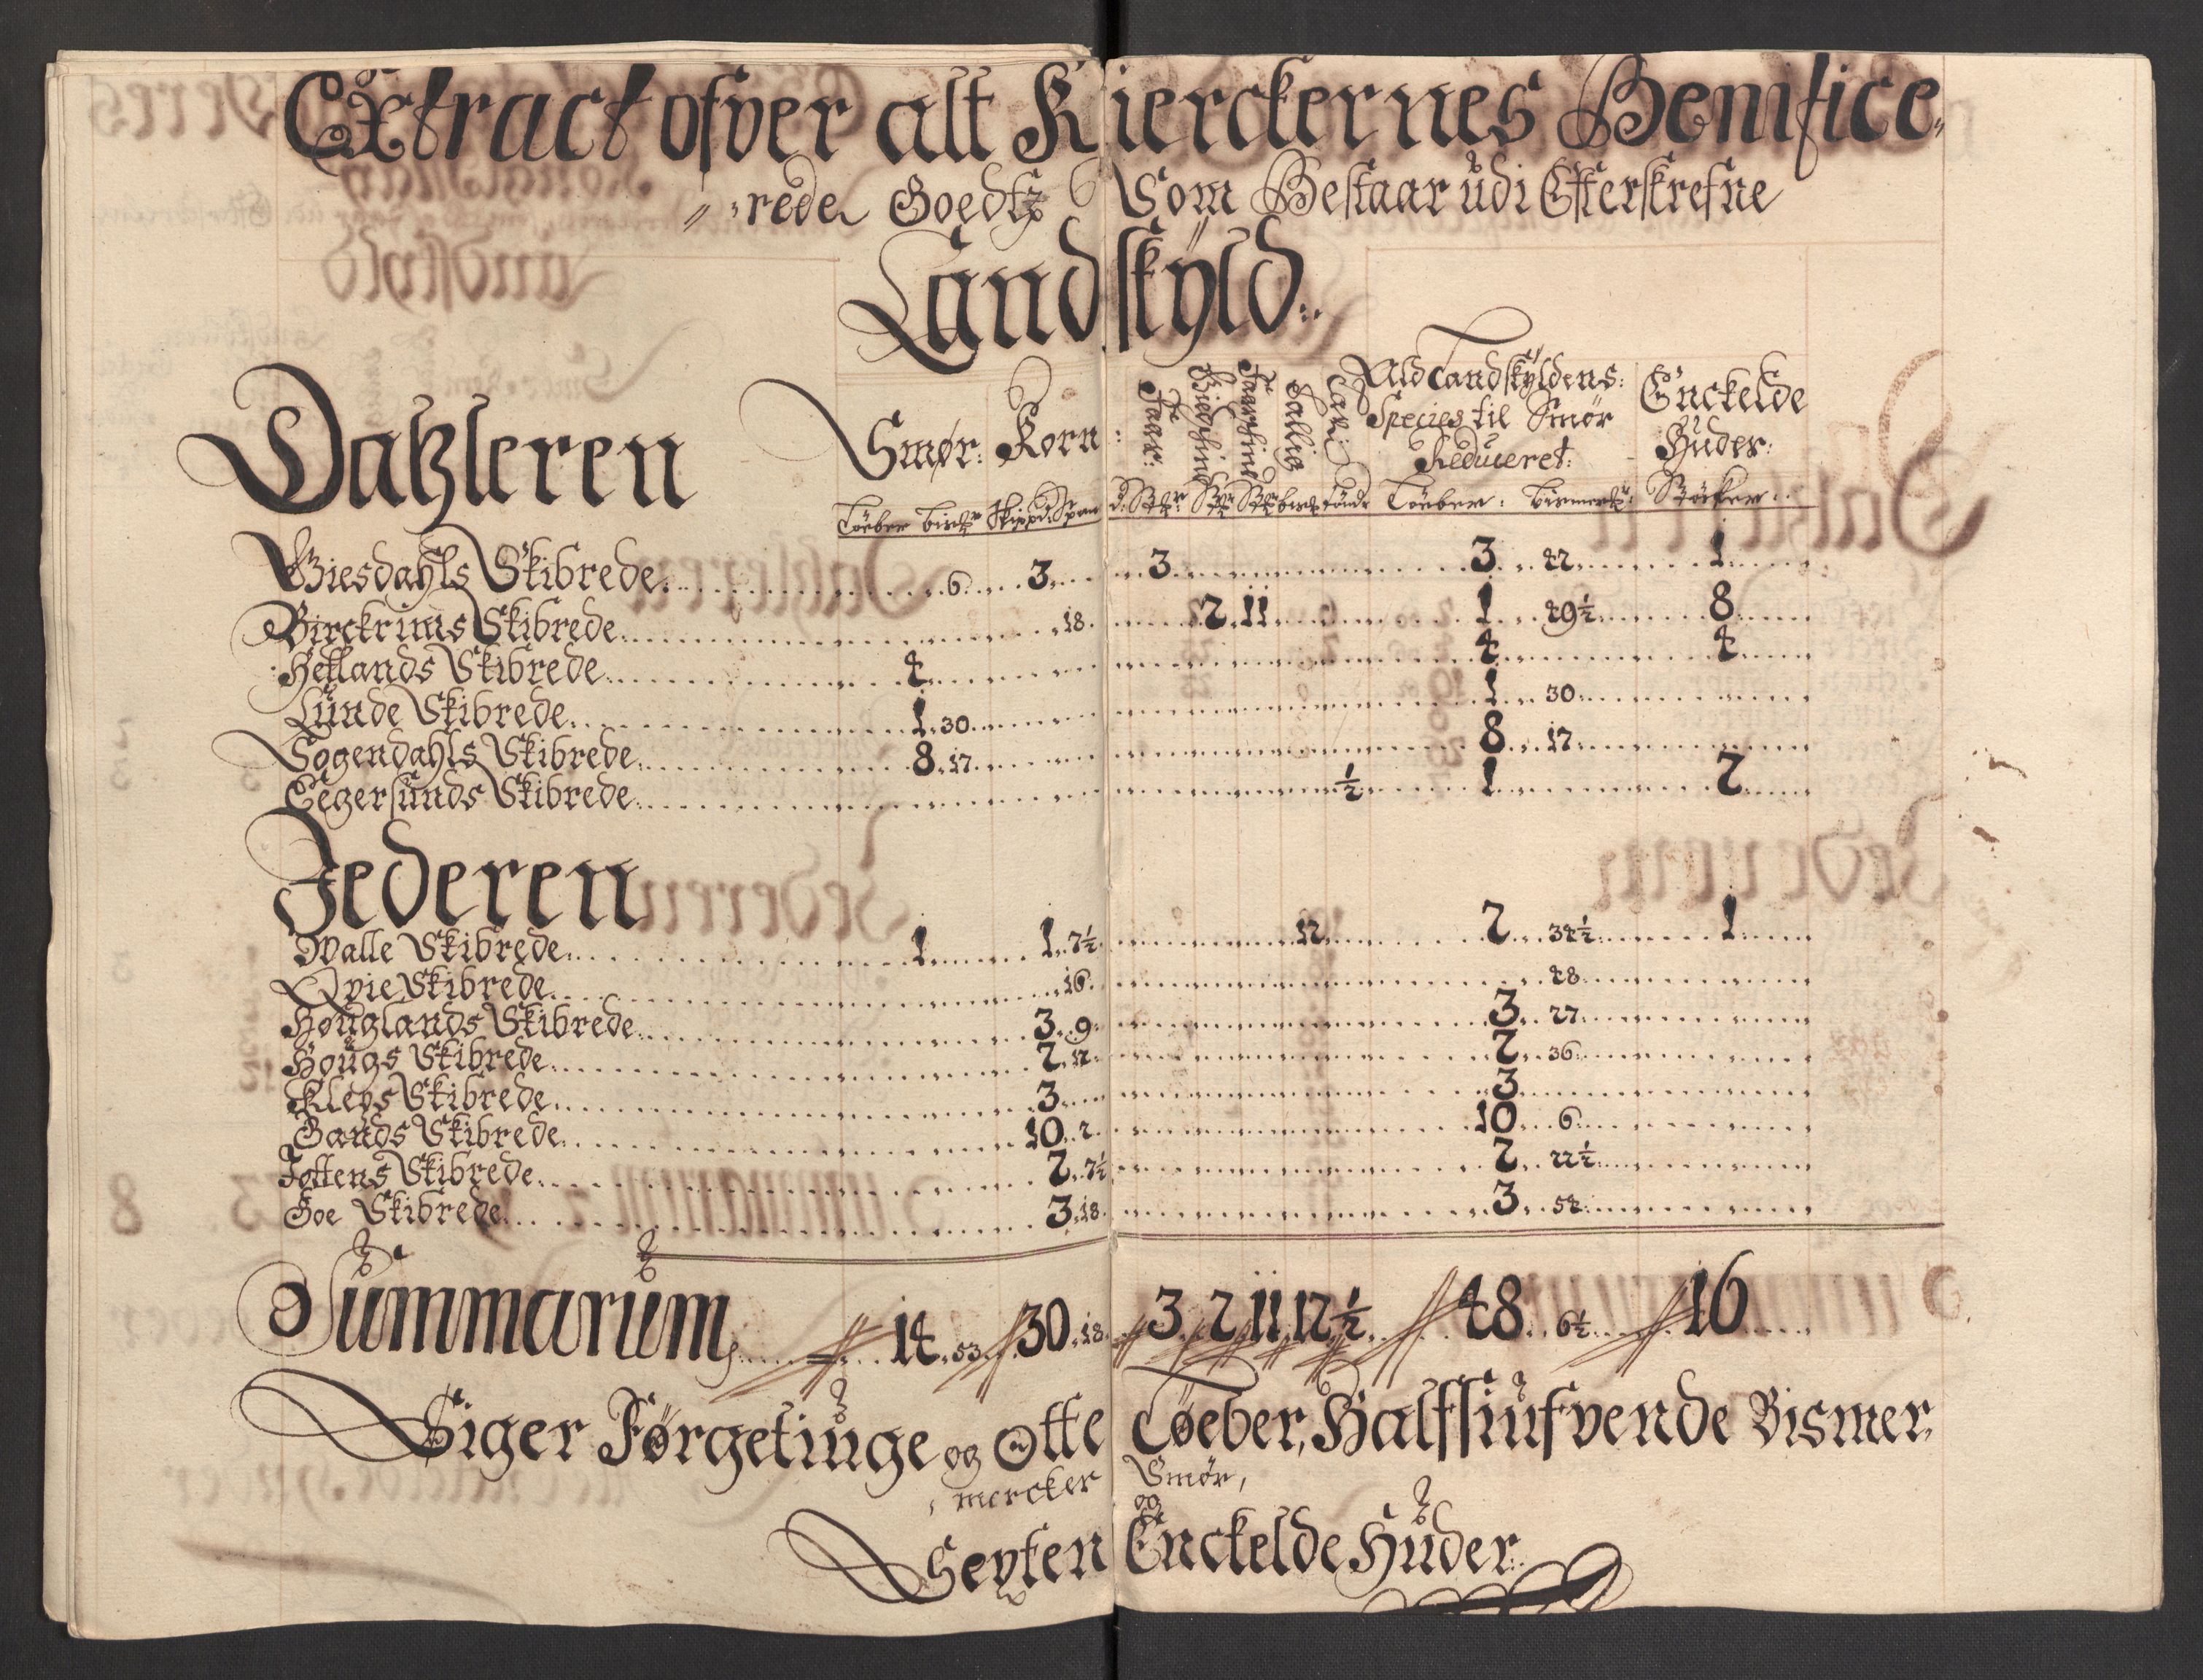 Extract ofver alt Kierckernes Benifice„
„rede Goedtz Som Bestaar udi Efterskrefne
Landskyld:.
Datzleren
Smør: Korn: Faar: Giedskind Faarskind Sallt: Ald Landskyldens: Species til Smør Reduceret: Enckelde Huder:
Løeber Tøeber: Bismerk: Støcker:
Giesdahls Skibrede 6 3 3 3 42 1
Birckrims Skibrede 18 2 11 1 49½ 8
Hetlands Skibrede 4 4 4
Lunde Skibrede 1 30 1 30
Sogendahls Skibrede 8 17 8 17
Eegersunds Skibrede ½ 1 2
Jederen
Walle Skibrede 1 1 7½ 12 2 34½ 1
Qvie Skibrede 16 48
Houglands Skibrede 3 9 3 27
Hougs Skibrede 2 12 2 36
Kleps Skibrede 3 3
Gands Skibrede 10 2 10 6
Tottens Skibrede 2 7½ 2 22½
Goe Skibrede 3 18 3 54
Summarum 14 53 30 18 3 2 11 12 ½ 48 6½ 16
Siger Førgetiuge og Otte Løeber, Halfsiufvende Bismer,
mercker Smør,
og
Seyten Enckelde Huder: